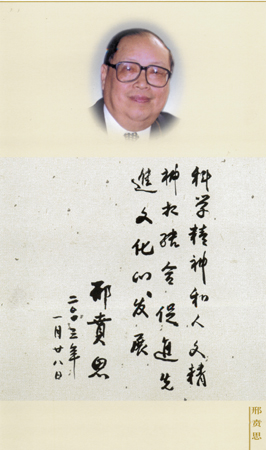 科学精神和人文精
神相结合促进先
進文化的发展
邢贲思
二〇〇三年
一月廿八日
邢贲思